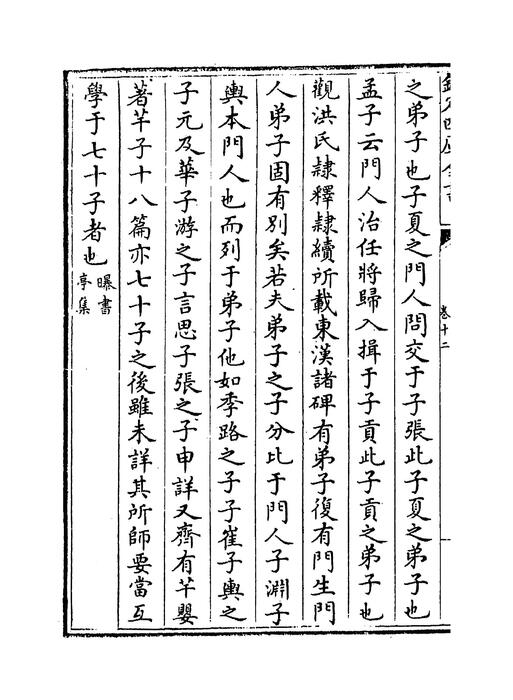 欽定四庫全書
卷十二
之弟子也子夏之門人問交于子張此子夏之弟子也
孟子云門人治任將歸入揖于子貢此子貢之弟子也
觀洪氏隷釋隷續所載東漢諸碑有弟子復有門生門
人弟子固有别矣若夫弟子之子分比于門人子淵子
輿本門人也而列于弟子他如季路之子子崔子輿之
子元及華子游之子言思子張之子申詳又齊有芊嬰
著芊子十八篇亦七十子之後雖未詳其所師要當互
學于七十子者也
曝書
亭集